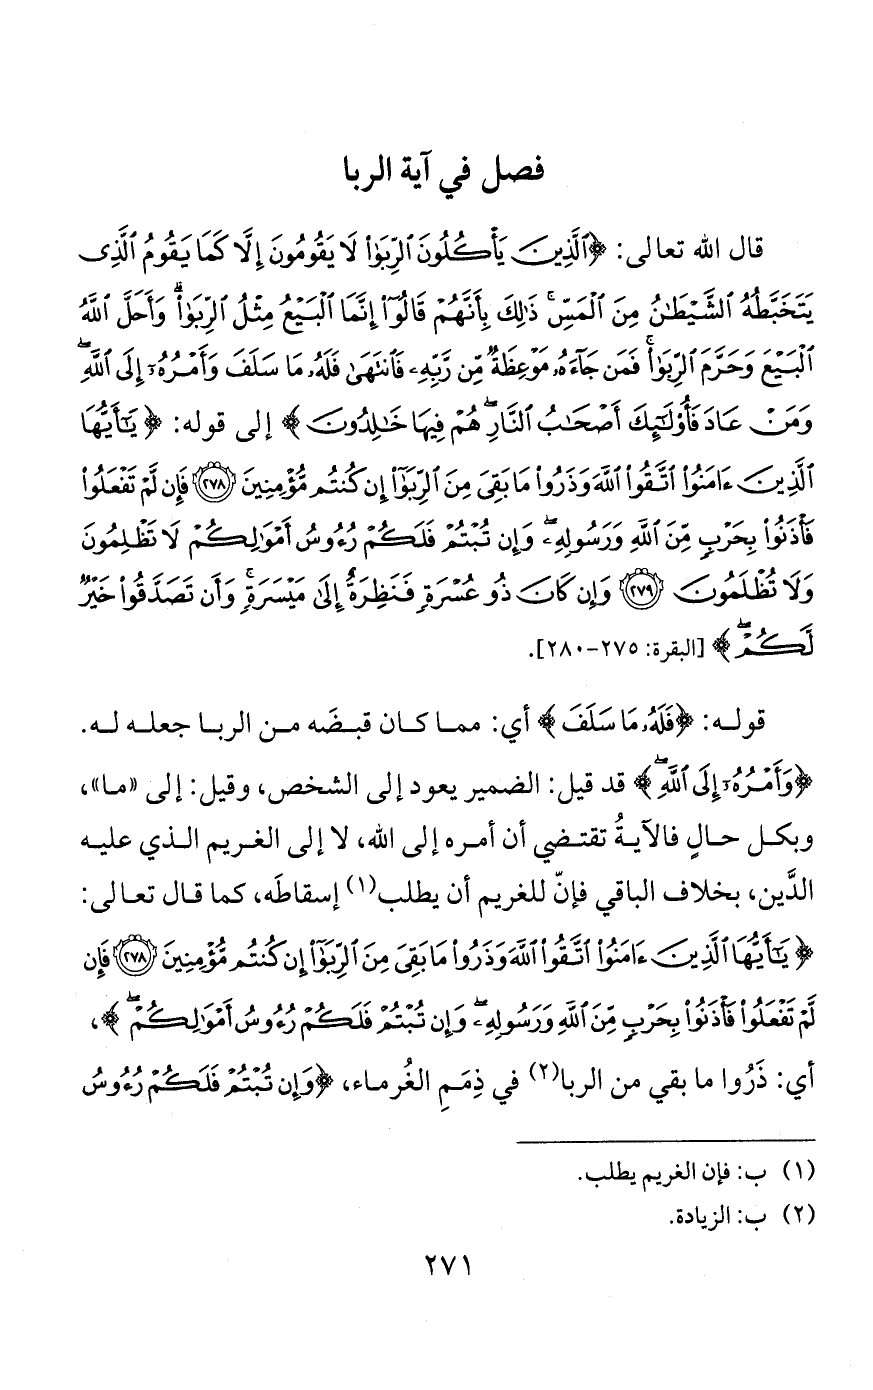 فصل في آية الربا
قال الله تعالى: ﴿ٱلَّذِينَ يَأۡكُلُونَ ٱلرِّبَوٰاْ لَا يَقُومُونَ إِلَّا كَمَا يَقُومُ ٱلَّذِى
يَتَخَبَّطُهُ ٱلشَّيۡطَٰنُ مِنَ ٱلۡمَسِّۚ ذَٰلِكَ بِأَنَّهُمۡ قَالُوٓاْ إِنَّمَا ٱلۡبَيۡعُ مِثۡلُ ٱلرِّبَوٰاْۗ وَأَحَلَّ ٱللَّهُ
ٱلۡبَيۡعَ وَحَرَّمَ ٱلرِّبَوٰاْۚ فَمَن جَآءَهُۥ مَوۡعِظَةٞ مِّن رَّبِّهِۦ فَٱنتَهَىٰ فَلَهُۥ مَا سَلَفَ وَأَمۡرُهُۥٓ إِلَى ٱللَّهِۖ
وَمَنۡ عَادَ فَأُوْلَٰٓئِكَ أَصۡحَٰبُ ٱلنَّارِۖ هُمۡ فِيهَا خَٰلِدُونَ﴾ إلى قوله: ﴿يَٰٓأَيُّهَا
ٱلَّذِينَ ءَامَنُواْ ٱتَّقُواْ ٱللَّهَ وَذَرُواْ مَا بَقِىَ مِنَ ٱلرِّبَوٰٓاْ إِن كُنتُم مُّؤۡمِنِينَ ۝٢٧٨ فَإِن لَّمۡ تَفۡعَلُواْ
فَأۡذَنُواْ بِحَرۡبٖ مِّنَ ٱللَّهِ وَرَسُولِهِۦۖ وَإِن تُبۡتُمۡ فَلَكُمۡ رُءُوسُ أَمۡوَٰلِكُمۡ لَا تَظۡلِمُونَ
وَلَا تُظۡلَمُونَ ۝٢٧٩ وَإِن كَانَ ذُو عُسۡرَةٖ فَنَظِرَةٌ إِلَىٰ مَيۡسَرَةٖۚ وَأَن تَصَدَّقُواْ خَيۡرٞ
لَّكُمۡۖ﴾ [البقرة: ٢٧٥-٢٨٠].
قوله: ﴿فَلَهُۥ مَا سَلَفَ﴾ أي: مما كان قبضَه من الربا جعله له.
﴿وَأَمۡرُهُۥٓ إِلَى ٱللَّهِۖ﴾ قد قيل: الضمير يعود إلى الشخص، وقيل: إلى «ما»،
وبكل حالٍ فالآيةُ تقتضي أن أمره إلى الله، لا إلى الغريم الذي عليه
الدَّين، بخلاف الباقي فإنّ للغريم أن يطلب(١) إسقاطَه، كما قال تعالى:
﴿يَٰٓأَيُّهَا ٱلَّذِينَ ءَامَنُواْ ٱتَّقُواْ ٱللَّهَ وَذَرُواْ مَا بَقِىَ مِنَ ٱلرِّبَوٰٓاْ إِن كُنتُم مُّؤۡمِنِينَ ۝٢٧٨ فَإِن
لَّمۡ تَفۡعَلُواْ فَأۡذَنُواْ بِحَرۡبٖ مِّنَ ٱللَّهِ وَرَسُولِهِۦۖ وَإِن تُبۡتُمۡ فَلَكُمۡ رُءُوسُ أَمۡوَٰلِكُمۡۖ﴾،
أي: ذَرُوا ما بقي من الربا(٢) في ذِمَمِ الغُرماء، ﴿وَإِن تُبۡتُمۡ فَلَكُمۡ رُءُوسُ
(١) ب: فإن الغريم يطلب.
(٢) ب: الزيادة.
٢٧١